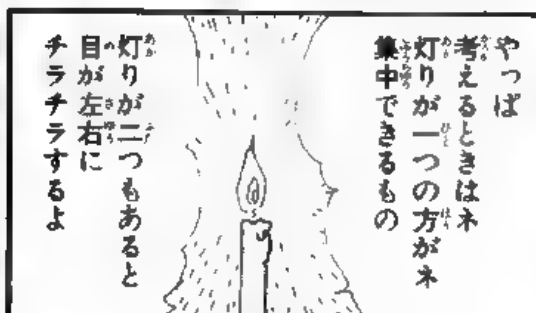 やっぱ
考えるときはネ
灯りが一つの方がネ
集中できるもの
灯りが二つもあると
目が左右に
チラチラするよ